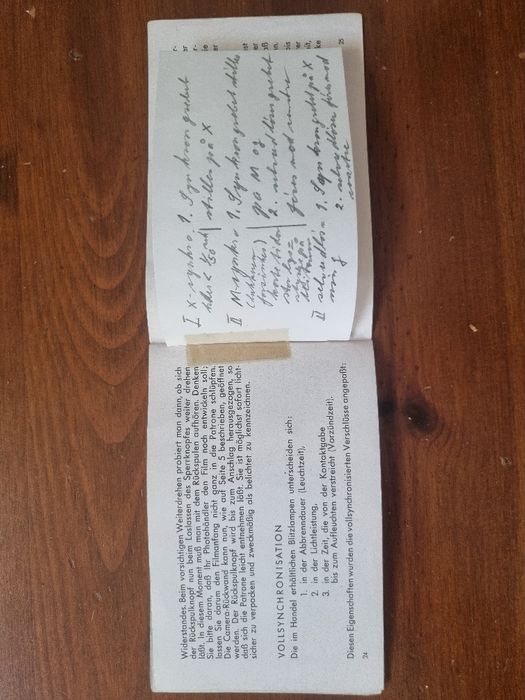 Widerstandes. Beim vorsichtigen Weiterdrehen probiert man dann, ob sich
der Rückspulknopf nun beim Loslassen des Sperrknopfes weiter drehen
läßt. In diesem Moment muß man mit dem Rückspulen aufhören. Denken
Sie bitte daran, daß Ihr Photohändler den Film noch entwickeln soll;
lassen Sie darum den Filmanfang nicht ganz in die Patrone schlüpfen.
Die Camera-Rückwand kann nun, wie auf Seite 5 beschrieben, geöffnet
werden. Der Rückspulknopf wird bis zum Anschlag herausgezogen, so
daß sich die Patrone leicht entnehmen läßt. Sie ist möglichst sofort licht-
sicher zu verpacken und zweckmäßig als belichtet zu kennzeichnen.
VOLLSYNCHRONISATION
Die im Handel erhältlichen Blitzlampen unterscheiden sich:
1. in der Abbrenndauer (Leuchtzeit),
2. in der Lichtleistung,
3. in der Zeit, die von der Kontaktgabe
bis zum Aufleuchten verstreicht (Vorzündzeit).
Diesen Eigenschaften wurden die vollsynchronisierten Verschlüsse angepaßt:
24
I X-synkro. 1. Synkrongrebet
stilles på X
II M-synkro 1. Synkrongrebet stilles
på M og
2. selvudløsergrebet
føres mod venstre
II selvudløs= 1. Synkrongrebet på X
ning 2. selvudløser føres mod
venstre
25